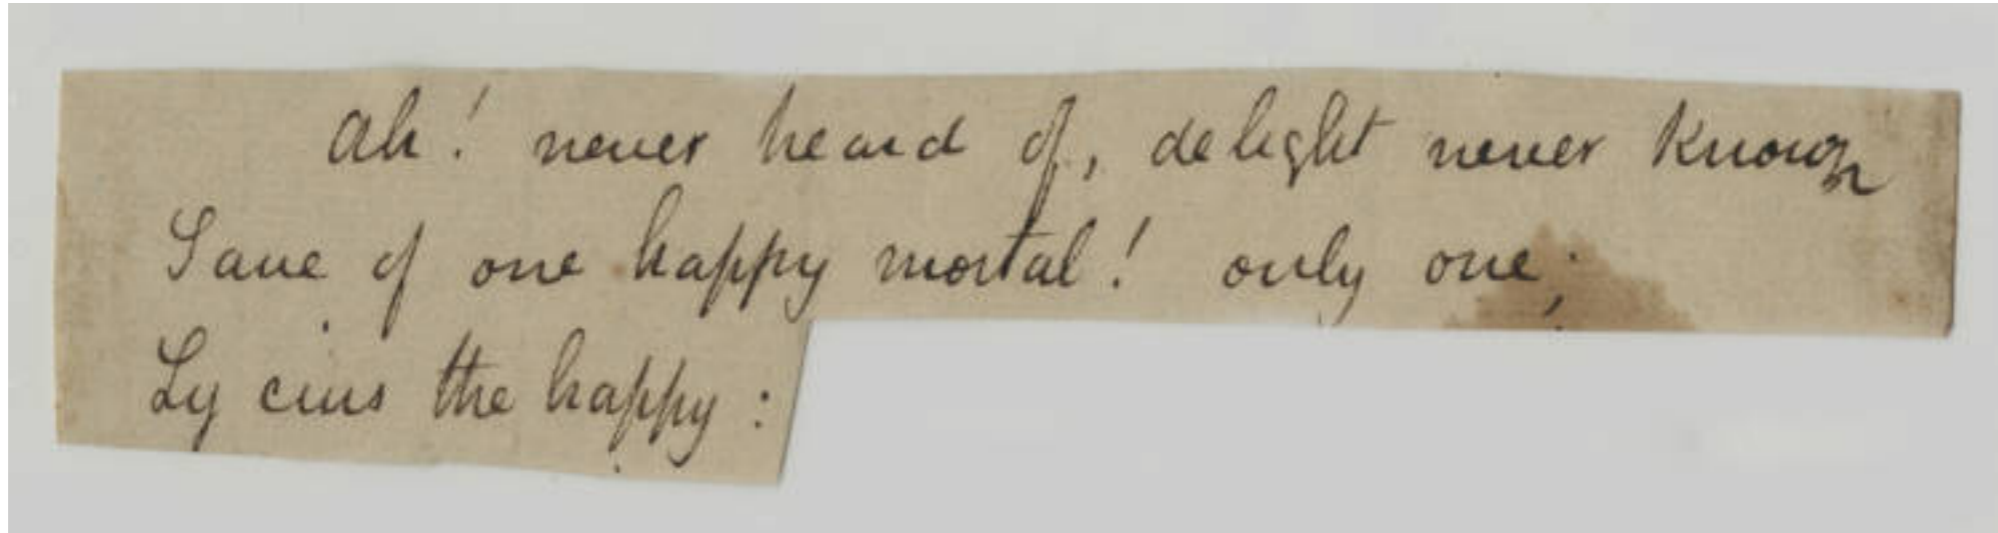 Ah! never heard of, delight never known
Save of one happy mortal! only one;
Lycius the happy: